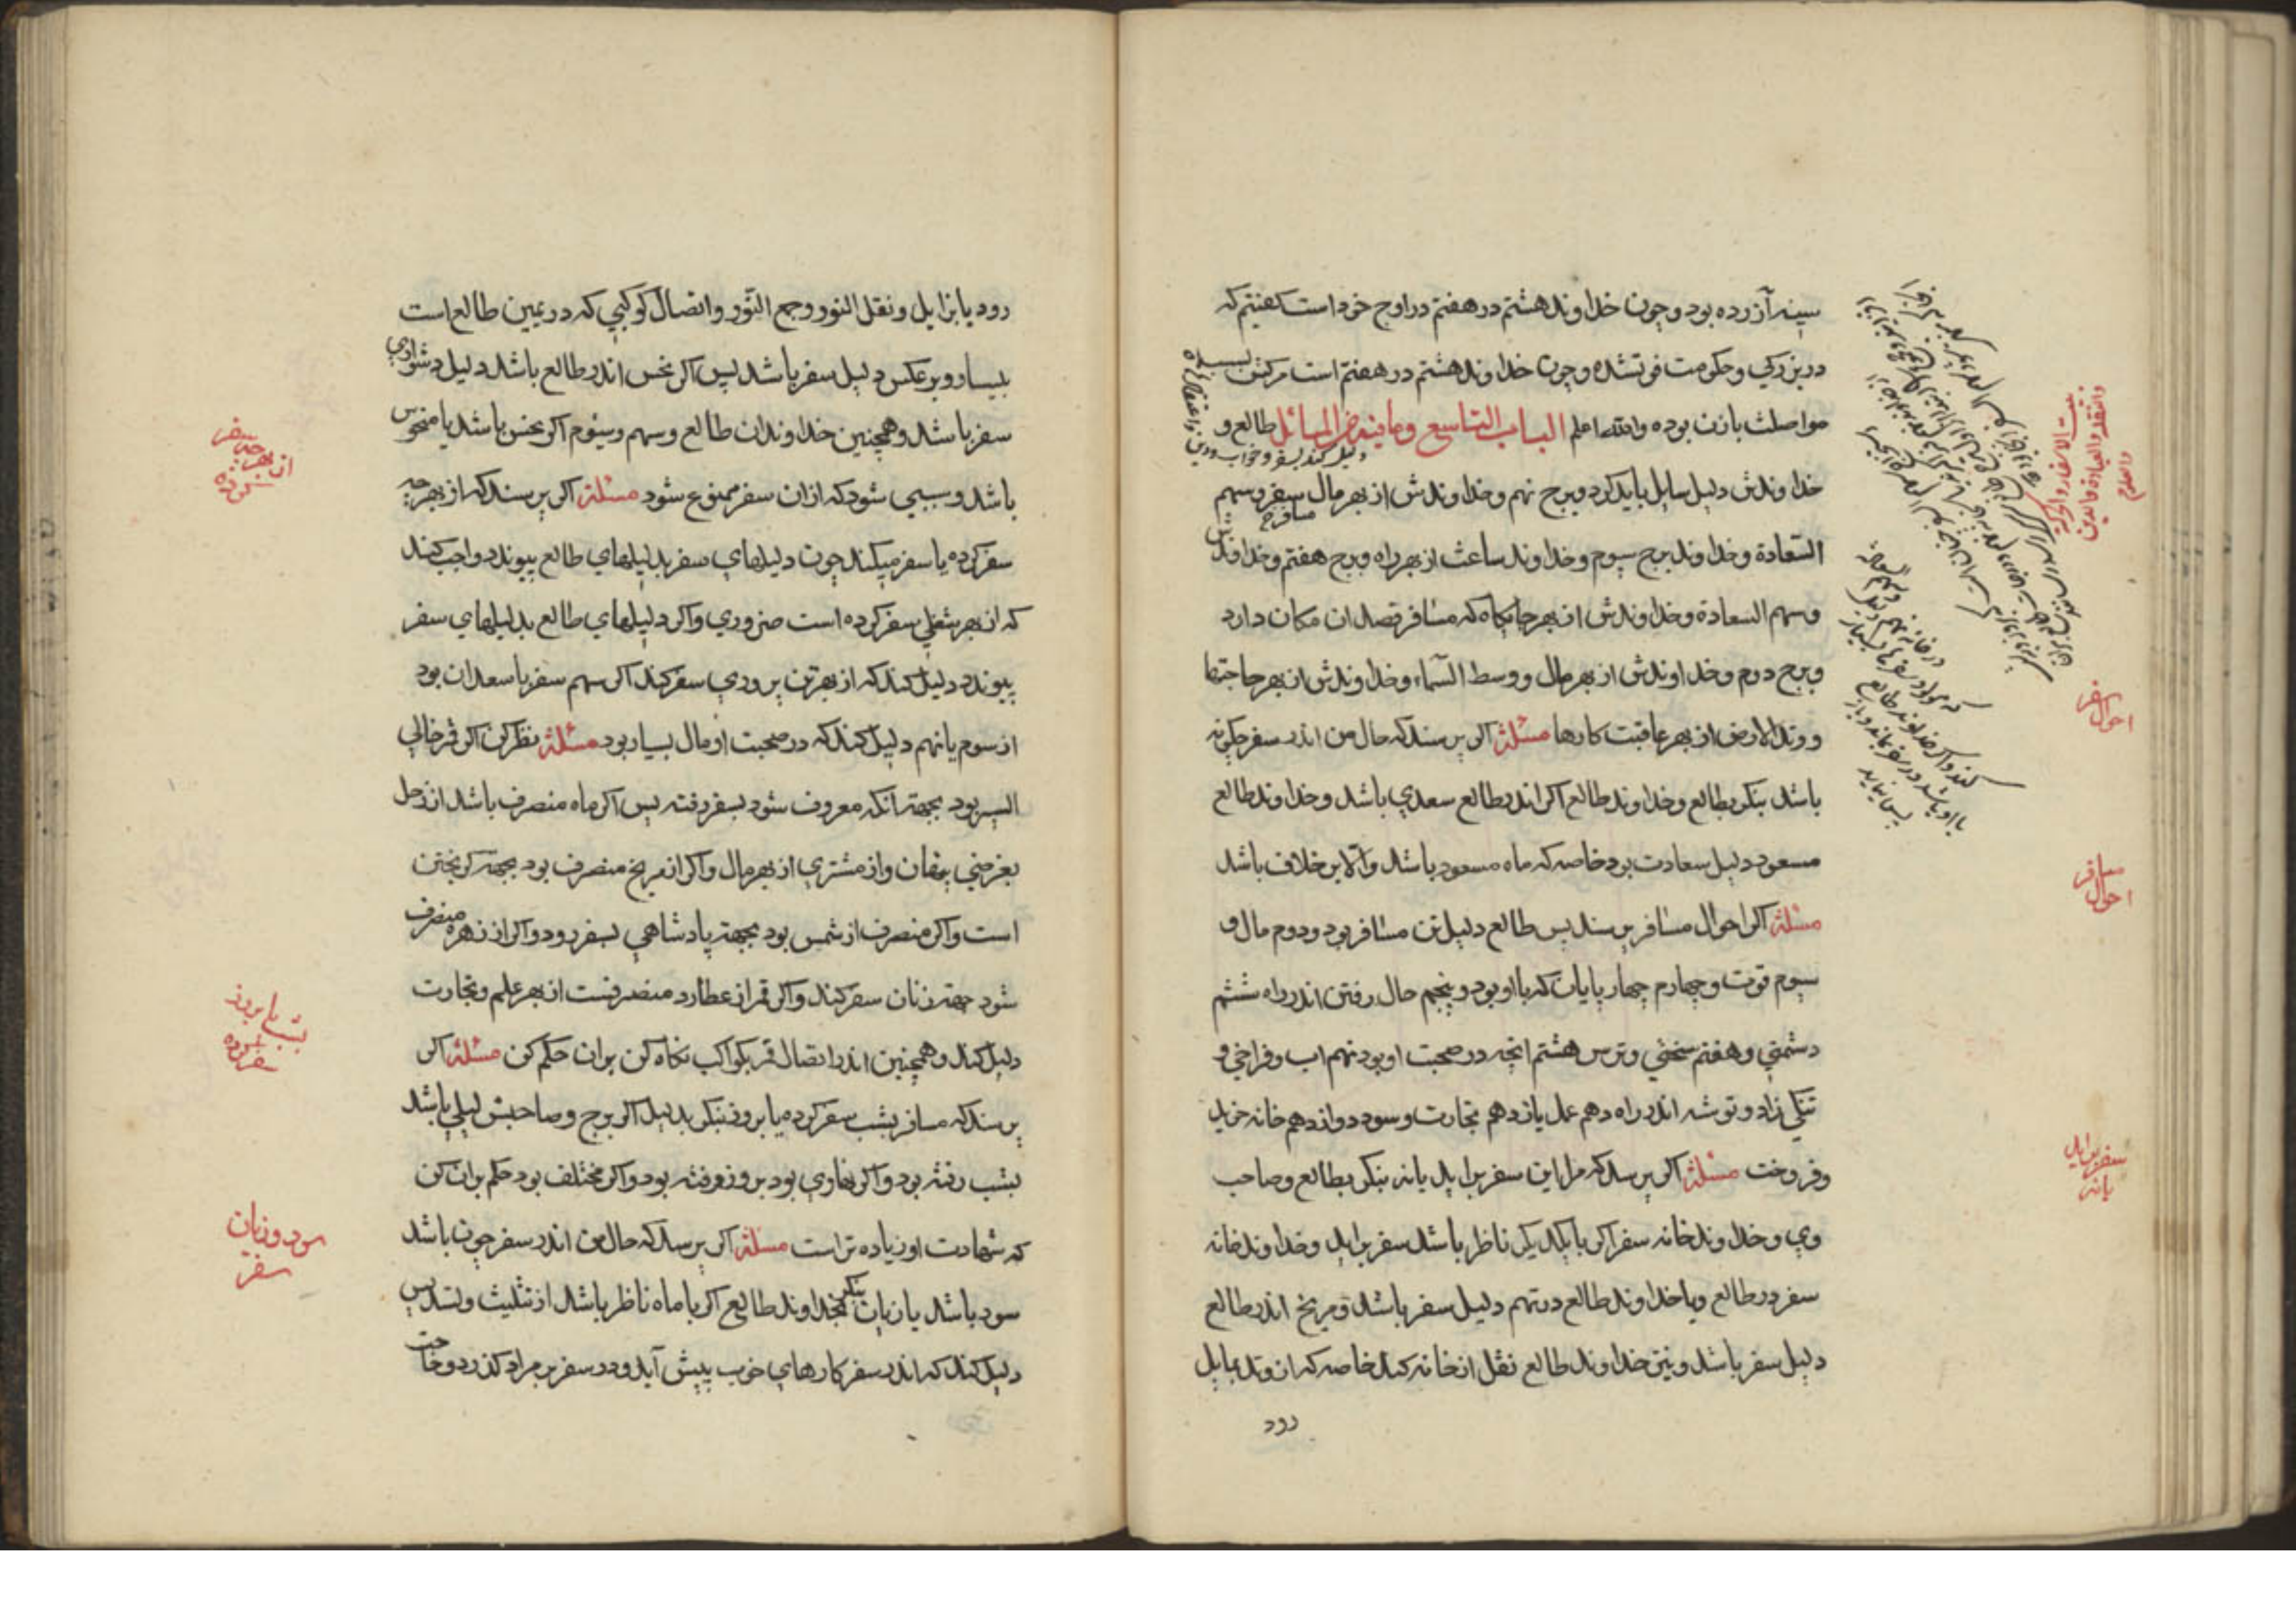 سینه آزرده بود و چون خداوند هشتم در هفتم در اوج خود است کفتیم که
در بزرکی و حکومت فوتشده و چون خداوند هشتم در هفتم است مرکش بسبب
مواصلت با زن بوده والله اعلم الباب التاسع وما فیه من المسائل طالع و
خداوندش دلیل سایل باید کرد و برج نهم و خداوندش از بهر مال سفر و سهم
السعادة و خداوند برج سیوم و خداوند ساعت از بهر راه و برج هفتم و خداوندش
وسهم السعادة و خداوندش از بهر جایکاه که مسافر قصد ان مکان دارد
و برج دوم و خداوندش از بهر مال و وسط السماء و خداوندش از بهر حاجتها
و وتد الارض از بهر عاقبت کارها مسئلة اکر پرسند که حال من اندر سفر چکونه
باشد بنکر بطالع و خداوند طالع اکر اندر طالع سعدی باشد و خداوند طالع
مسعود دلیل سعادت بود خاصه که ماه مسعود باشد والا بر خلاف باشد
مسئلة اکر احوال مسافر پرسند پس طالع دلیل تن مسافر بود و دوم مال و
سیوم قوت و چهارم چهار پایان که با او بود و پنجم حال رفتن اندر راه ششم
دشمنی و هفتم سختی و ترس هشتم انچه در صحبت او بود نهم اب و فراخی و
تنکی زاد و توشه اندر راه دهم عمل یازدهم تجارت و سود دوازدهم خانه خرید
و فروخت مسئلة اکر پرسد که مرا این سفر براید یا نه بنکر بطالع و صاحب
وی و خداوند خانه سفر اکر بایکدیکر ناظر باشند سفر براید و خداوند خانه
سفر در طالع و یا خداوند طالع در نهم دلیل سفر باشد و مریخ اندر طالع
دلیل سفر باشد و نیز خداوند طالع نقل از خانه کند خاصه که از وتد بمایل
رود
احوال سفر
احوال مسافر
سفر براید یا نه
رود یا بزایل و نقل النور و جمع النور و اتصال کوکبی که در یمین طالع است
بیسار و بر عکس دلیل سفر باشد پس اکر نحس اندر طالع باشد دلیل دشواری
سفر باشد و همچنین خداوندان طالع و سهم و سیوم اکر نحس باشد یا منحوس
باشد و سببی شود که ازان سفر ممنوع شود مسئلة اکر پرسند که از بهر چه
سفر کرده یا سفر میکند چون دلیلهای سفر بدلیلهای طالع پیوندد واجب کند
که از بهر شغلی سفر کرده است ضروری و اکر دلیلهای طالع بدلیلهای سفر
پیوندد دلیل کند که از بهر تن پروری سفر کند اکر سهم سفر با سعدان بود
از سوم یا نهم دلیل کند که در صحبت او مال بسیار بود مسئلة نظر کن اکر قمر خالی
السیر بود بجهة انکه معروف شود بسفر رفته پس اکر ماه منصرف باشد از زحل
بغرضی پنهان و از مشتری از بهر مال و اکر از مریخ منصرف بود بجهة کریختن
است و اکر منصرف از شمس بود بجهة پادشاهی بسفر رود و اکر از زهره منصرف
شود جهة زنان سفر کند و اکر قمر از عطارد منصرفست از بهر علم و تجارت
دلیل کند و همچنین اندر اتصال قمر بکواکب نکاه کن بران حکم کن مسئلة اکر
پرسند که مسافر بشب سفر کرده یا بروز بنکر بدلیل اکر برج و صاحبش لیلی باشد
بشب رفته بود و اکر نهاری بود بروز رفته بود و اکر مختلف بود حکم بران کن
که شهادت او زیاده تر است مسئلة اکر پرسد که حال من اندر سفر چون باشد
سود باشد یا زیان بنکر بخداوند طالع اکر با ماه ناظر باشد از تثلیث و تسدیس
دلیل کند که اندر سفر کارهای خوب پیش آید و در سفر بر مراد کذرد و حاجت
از بهر چه سفر کرده
بشب یا بروز سفر کرده
سود و زیان سفر